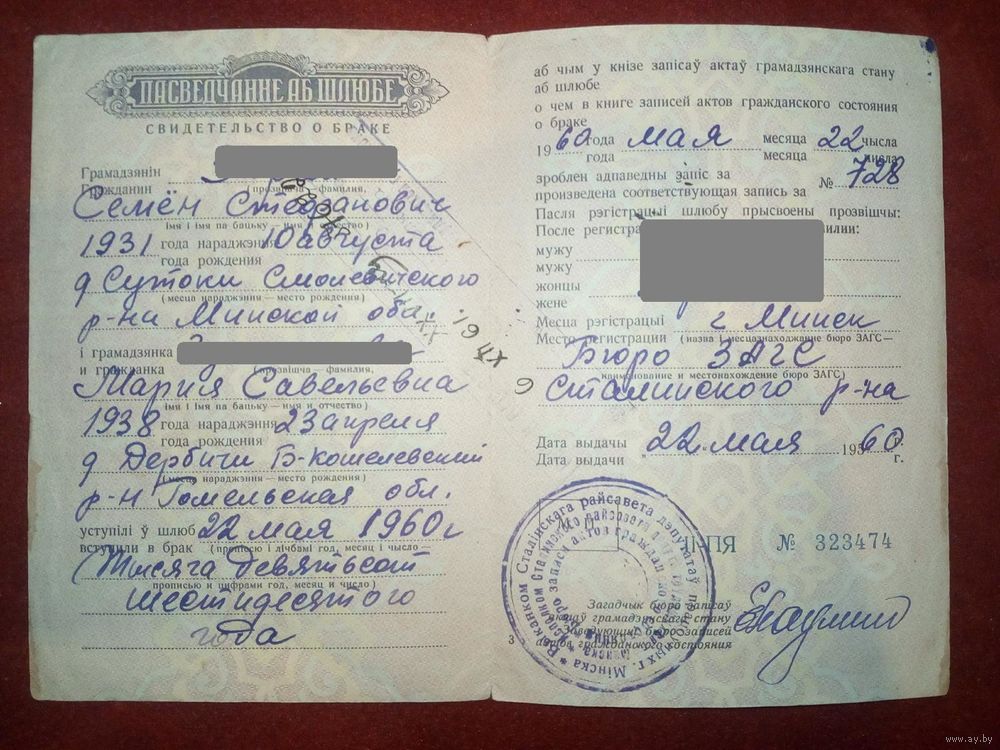 ПАСВЕДЧАННЕ АБ ШЛЮБЕ
СВИДЕТЕЛЬСТВО О БРАКЕ
Грамадзянін
Гражданин
(прозвішча — фамилия,
Семён Стефанович
імя і імя па бацьку — имя и отчество)
1931 года нараджэння 10 августа
года рождения
д Сутоки Смолевитского
(месца нараджэння — место рождения)
р-на Минской обл.
і грамадзянка
и гражданка
(прозвішча — фамилия,
Мария Савельевна
імя і імя па бацьку — имя и отчество)
1938 года нараджэння 23 апреля
года рождения
д Дербичи Б-Кошелевский
(месца нараджэння — место рождения)
р-н Гомельская обл.
уступілі ў шлюб 22 мая 1960 г
вступили в брак (прописю і лічбамі год, месяц і число —
Тысяча девятьсот
прописью и цифрами год, месяц и число)
шестидесятого
года
аб чым у кнізе запісаў актаў грамадзянскага стану
аб шлюбе
о чем в книге записей актов гражданского состояния
о браке
1960 года мая месяца 22 чысла
года месяца числа
зроблен адпаведны запіс за
произведена соответствующая запись за № 728
Пасля рэгістрацыі шлюбу прысвоены прозвішчы:
После регистра милии:
мужу
мужу
жонцы
жене
Месца рэгістрацыі г Минск
Место регистрации (назва і месцазнаходжанне бюро ЗАГС—
Бюро ЗАГС
наименование и местонахождение бюро ЗАГС)
Сталинского р-на
Дата выдачы 22 мая 1960 г.
Дата выдачи г.
II-ПЯ № 323474
Загадчык бюро запісаў
актаў грамадзянскага стану
Заведующий бюро записей
актов гражданского состояния
3
www.ay.by